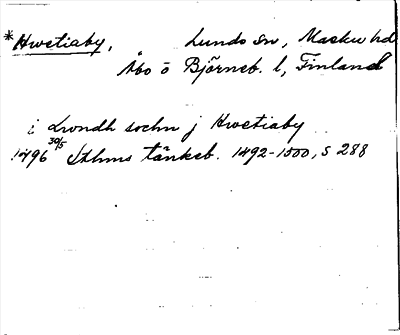 *Hwetiaby, Lundo sn, Masku hd
Åbo ö Björneb. l, Finland
i Lwndh sochn j Hwetiaby
1496 30/5 Sthms tänkeb. 1492-1500, s 288